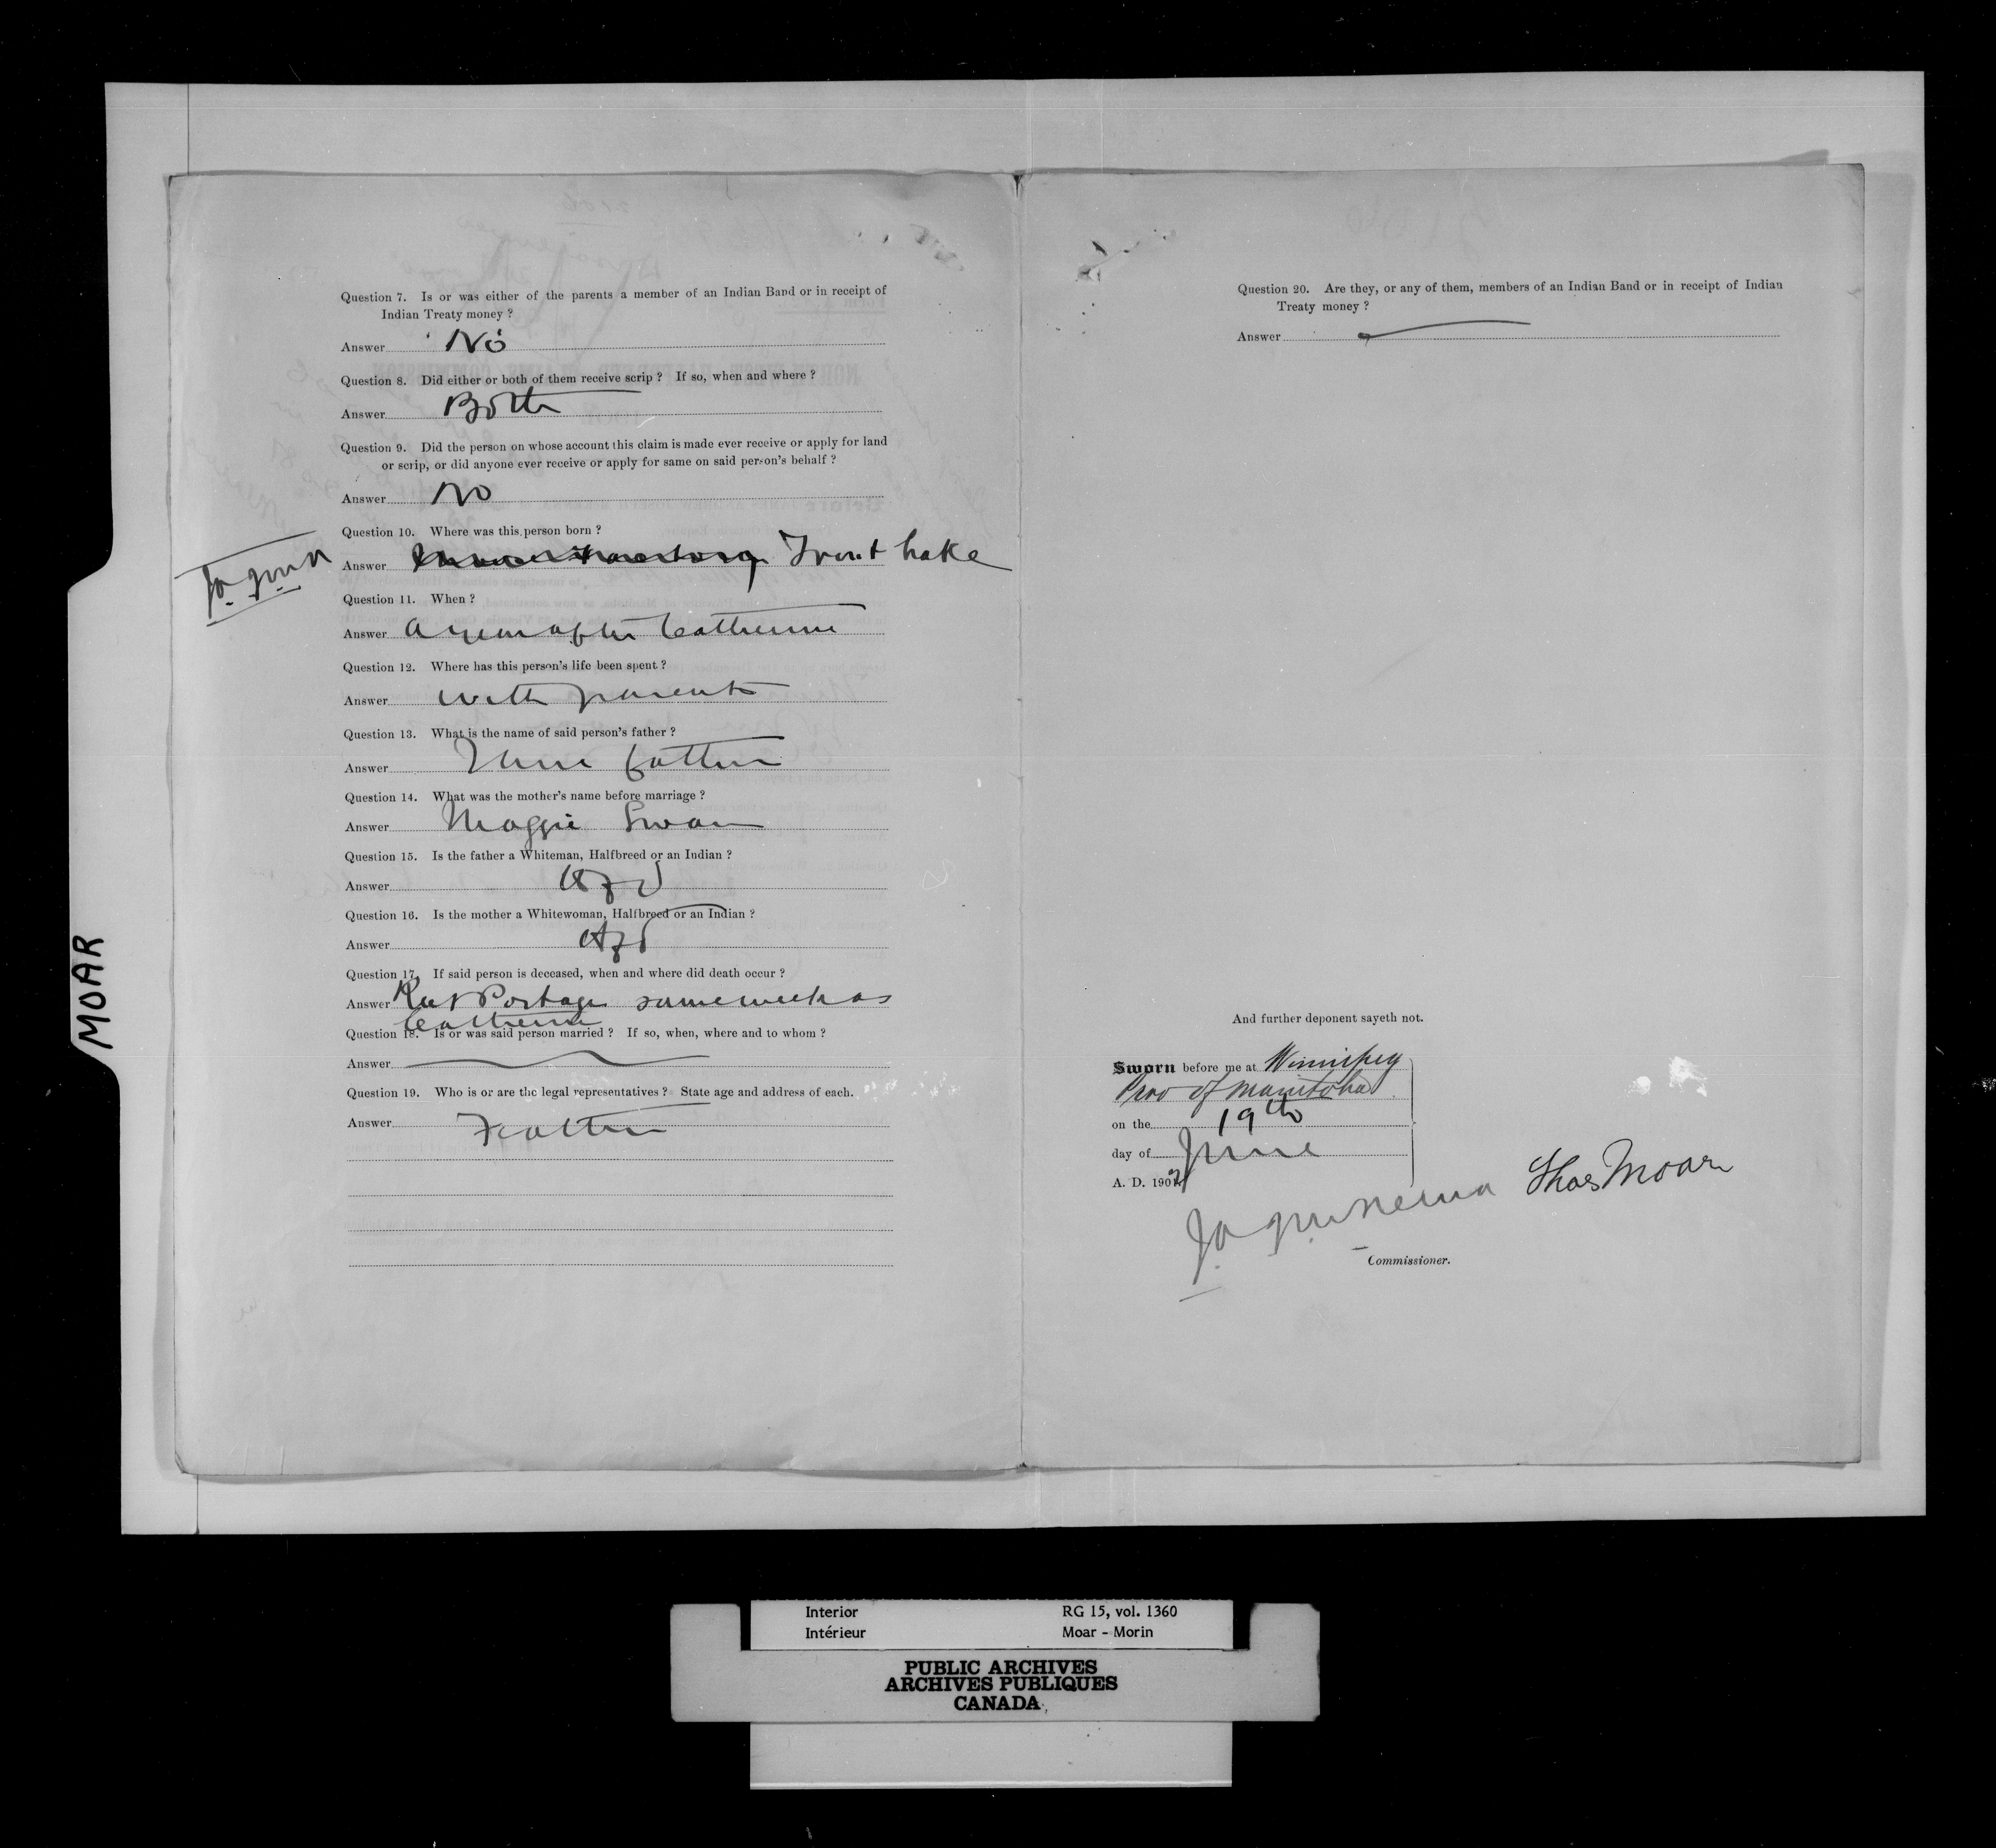 Question 7. Is or was either of the parents a member of an Indian Band or in receipt of
Indian Treaty money ?
Answer No
Question 8. Did either or both of them receive scrip ? If so, when and where ?
Answer Both
Question 9. Did the person on whose account this claim is made ever receive or apply for land
or scrip, or did anyone ever receive or apply for same on said person's behalf ?
Answer No
Question 10. Where was this person born ?
Answer Trout Lake
Question 11. When ?
Answer a year after Catherine
Question 12. Where has this person's life been spent ?
Answer with parents
Question 13. What is the name of said person's father ?
Answer father
Question 14. What was the mother's name before marriage ?
Answer Maggie Swan
Question 15. Is the father a Whiteman, Halfbreed or an Indian ?
Answer Hfd
Question 16. Is the mother a Whitewoman, Halfbreed or an Indian ?
Answer Hfd
Question 17. If said person is deceased, when and where did death occur ?
Answer Rat Portage same week as
Catherine
Question 18. Is or was said person married ? If so, when, where and to whom ?
Answer
Question 19. Who is or are the legal representatives ? State age and address of each.
Answer Father
MOAR
Question 20. Are they, or any of them, members of an Indian Band or in receipt of Indian
Treaty money ?
Answer
And further deponent sayeth not.
Sworn before me at Winnipeg
Prov of Manitoba
on the 19th
day of June
A. D. 190
Thos Moar
Commissioner.
Interior RG 15, vol. 1360
Intérieur Moar - Morin
PUBLIC ARCHIVES
ARCHIVES PUBLIQUES
CANADA